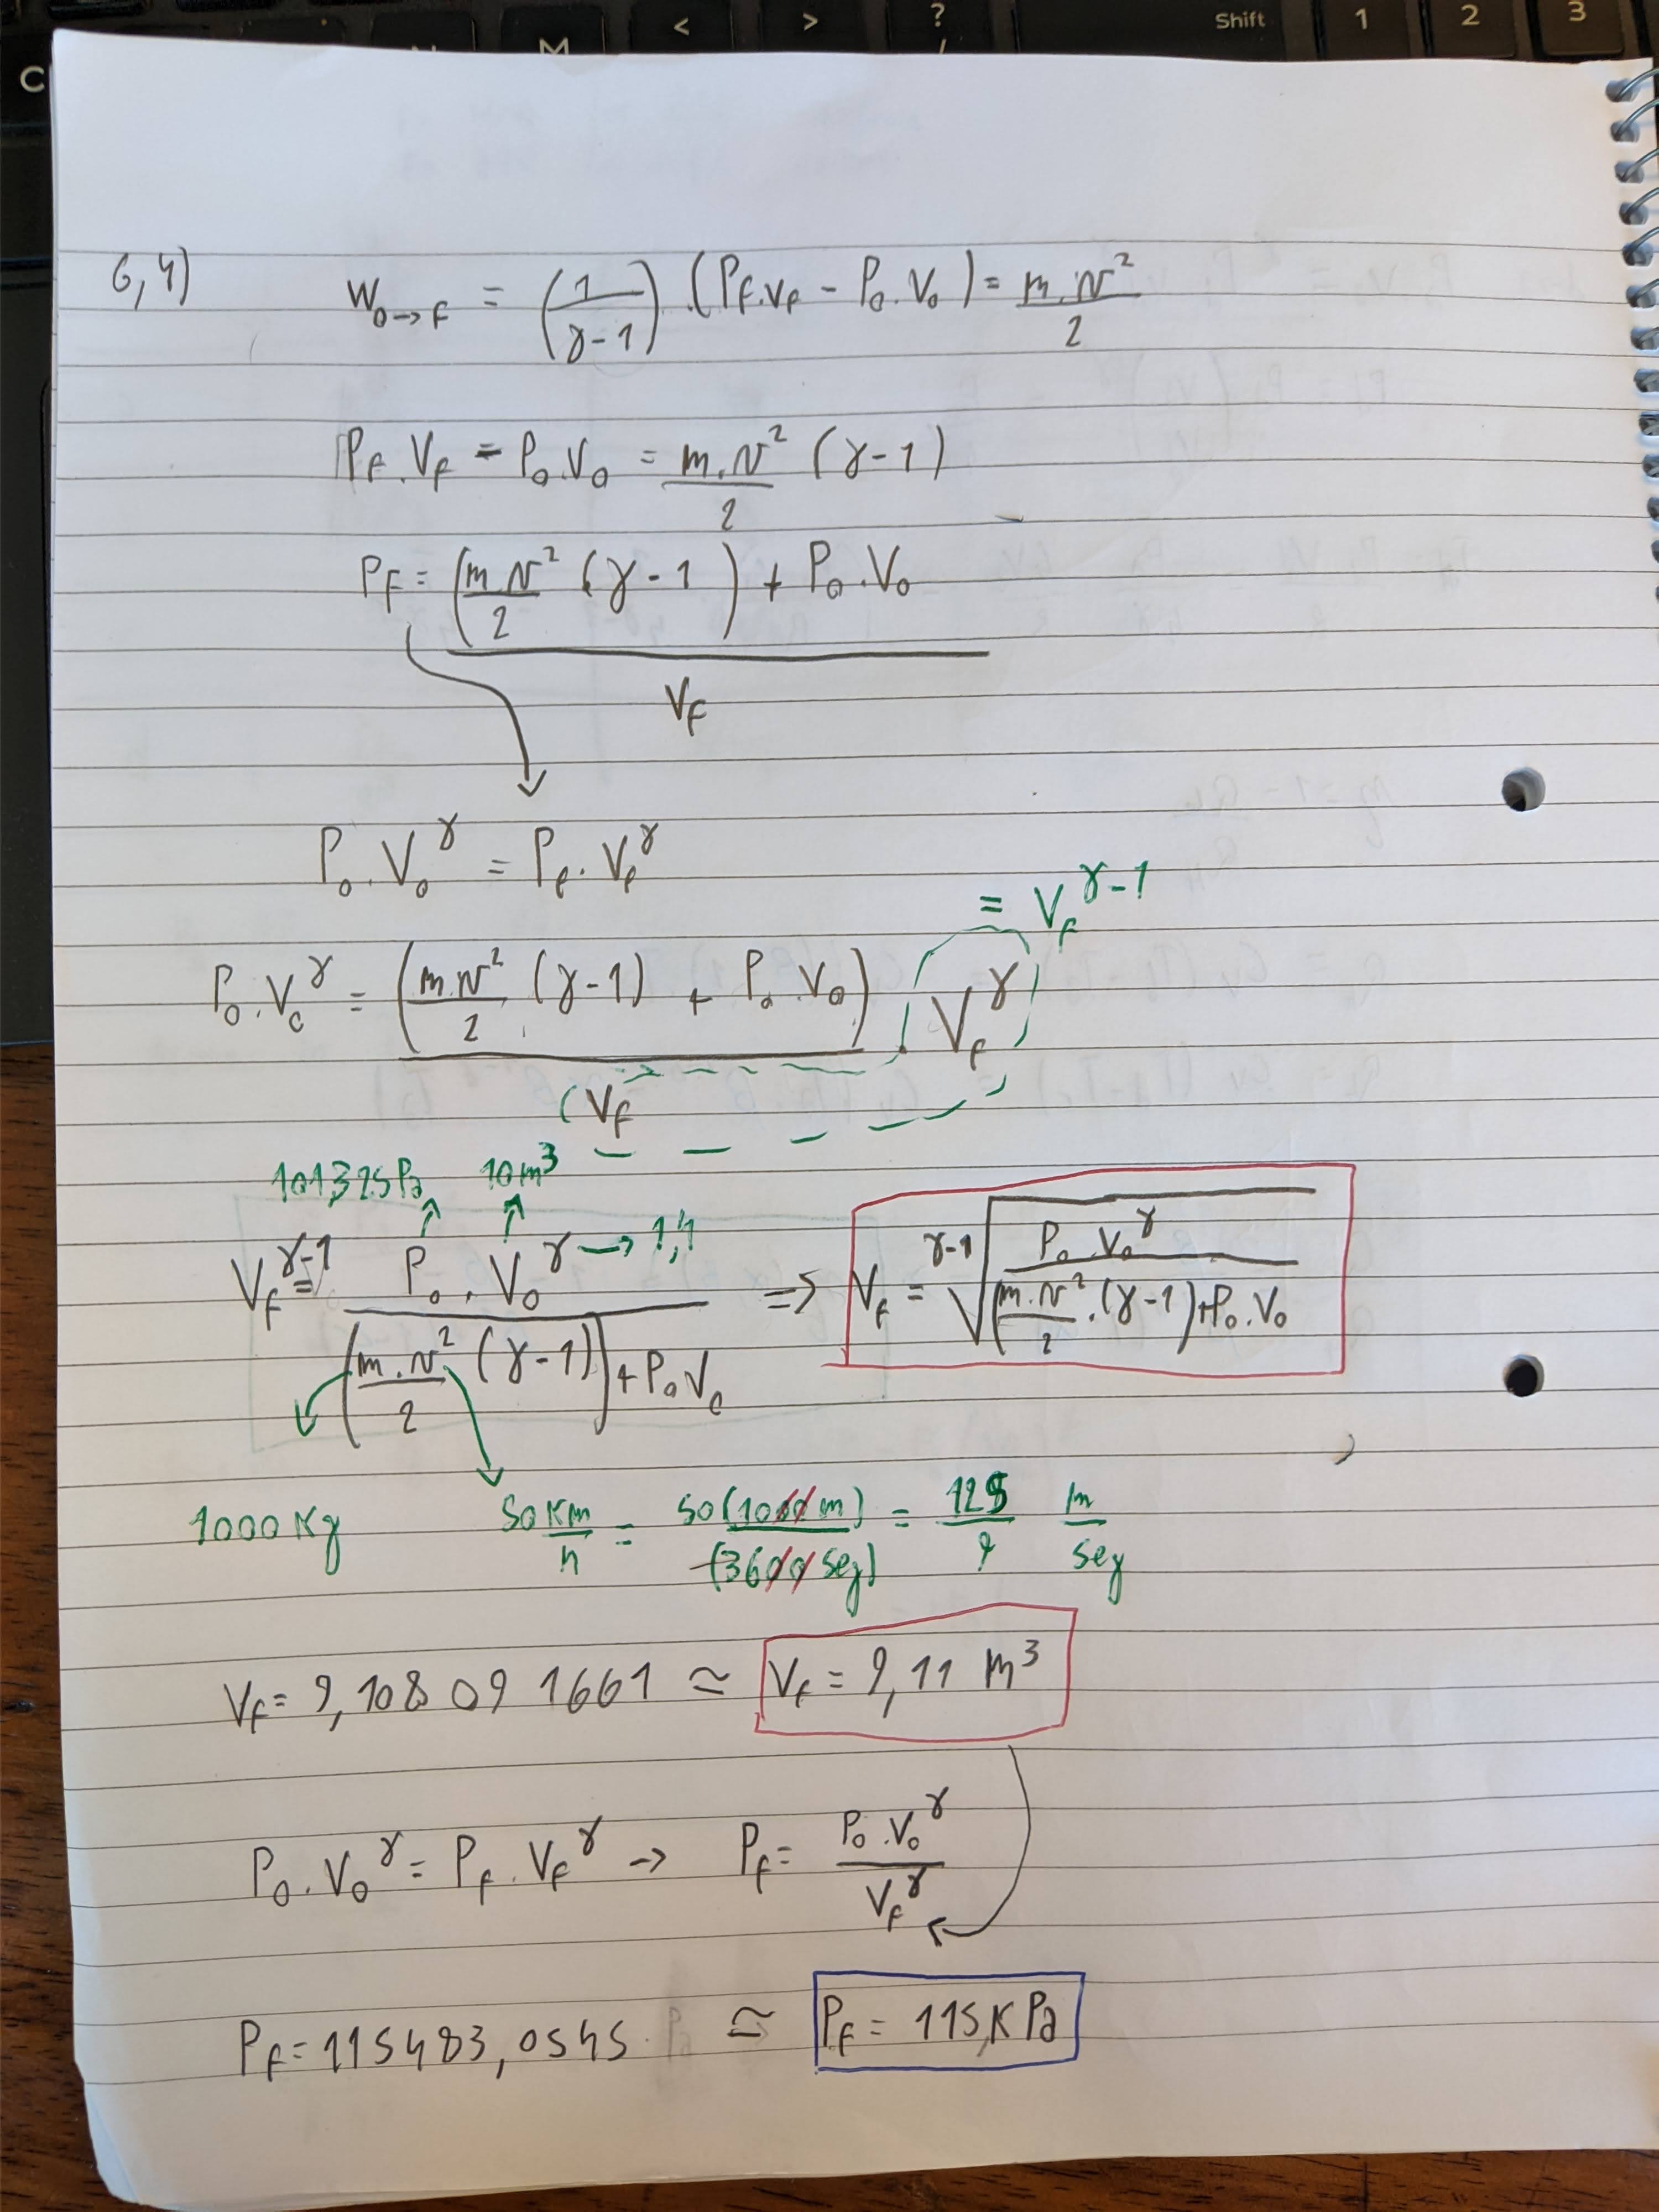 < > ? / Shift 1 2 3
C M
6,4) W₀→f = (1/(γ-1)) . (Pf.Vf - P₀.V₀) = m.v²/2
Pf.Vf - P₀.V₀ = m.v²/2 (γ-1)
Pf = ((m.v²/2 (γ-1)) + P₀.V₀)/Vf
P₀.V₀^γ = Pf.Vf^γ
= Vf^(γ-1)
P₀.V₀^γ = (m.v²/2 (γ-1) + P₀.V₀)/Vf . Vf^γ
101325Pa 10m³
Vf^(γ-1) = P₀.V₀^γ → 1,4 / ((m.v²/2 (γ-1)) + P₀V₀) => Vf = ^(γ-1)√(P₀.V₀^γ / ((m.v²/2 .(γ-1)) + P₀.V₀))
1000 Kg 50 Km/h = 50(1000m)/(3600seg) = 125/9 m/seg
Vf = 9,108091661 ≃ Vf = 9,11 m³
P₀.V₀^γ = Pf.Vf^γ → Pf = P₀.V₀^γ/Vf^γ
Pf = 115483,0545 ≃ Pf = 115,KPa